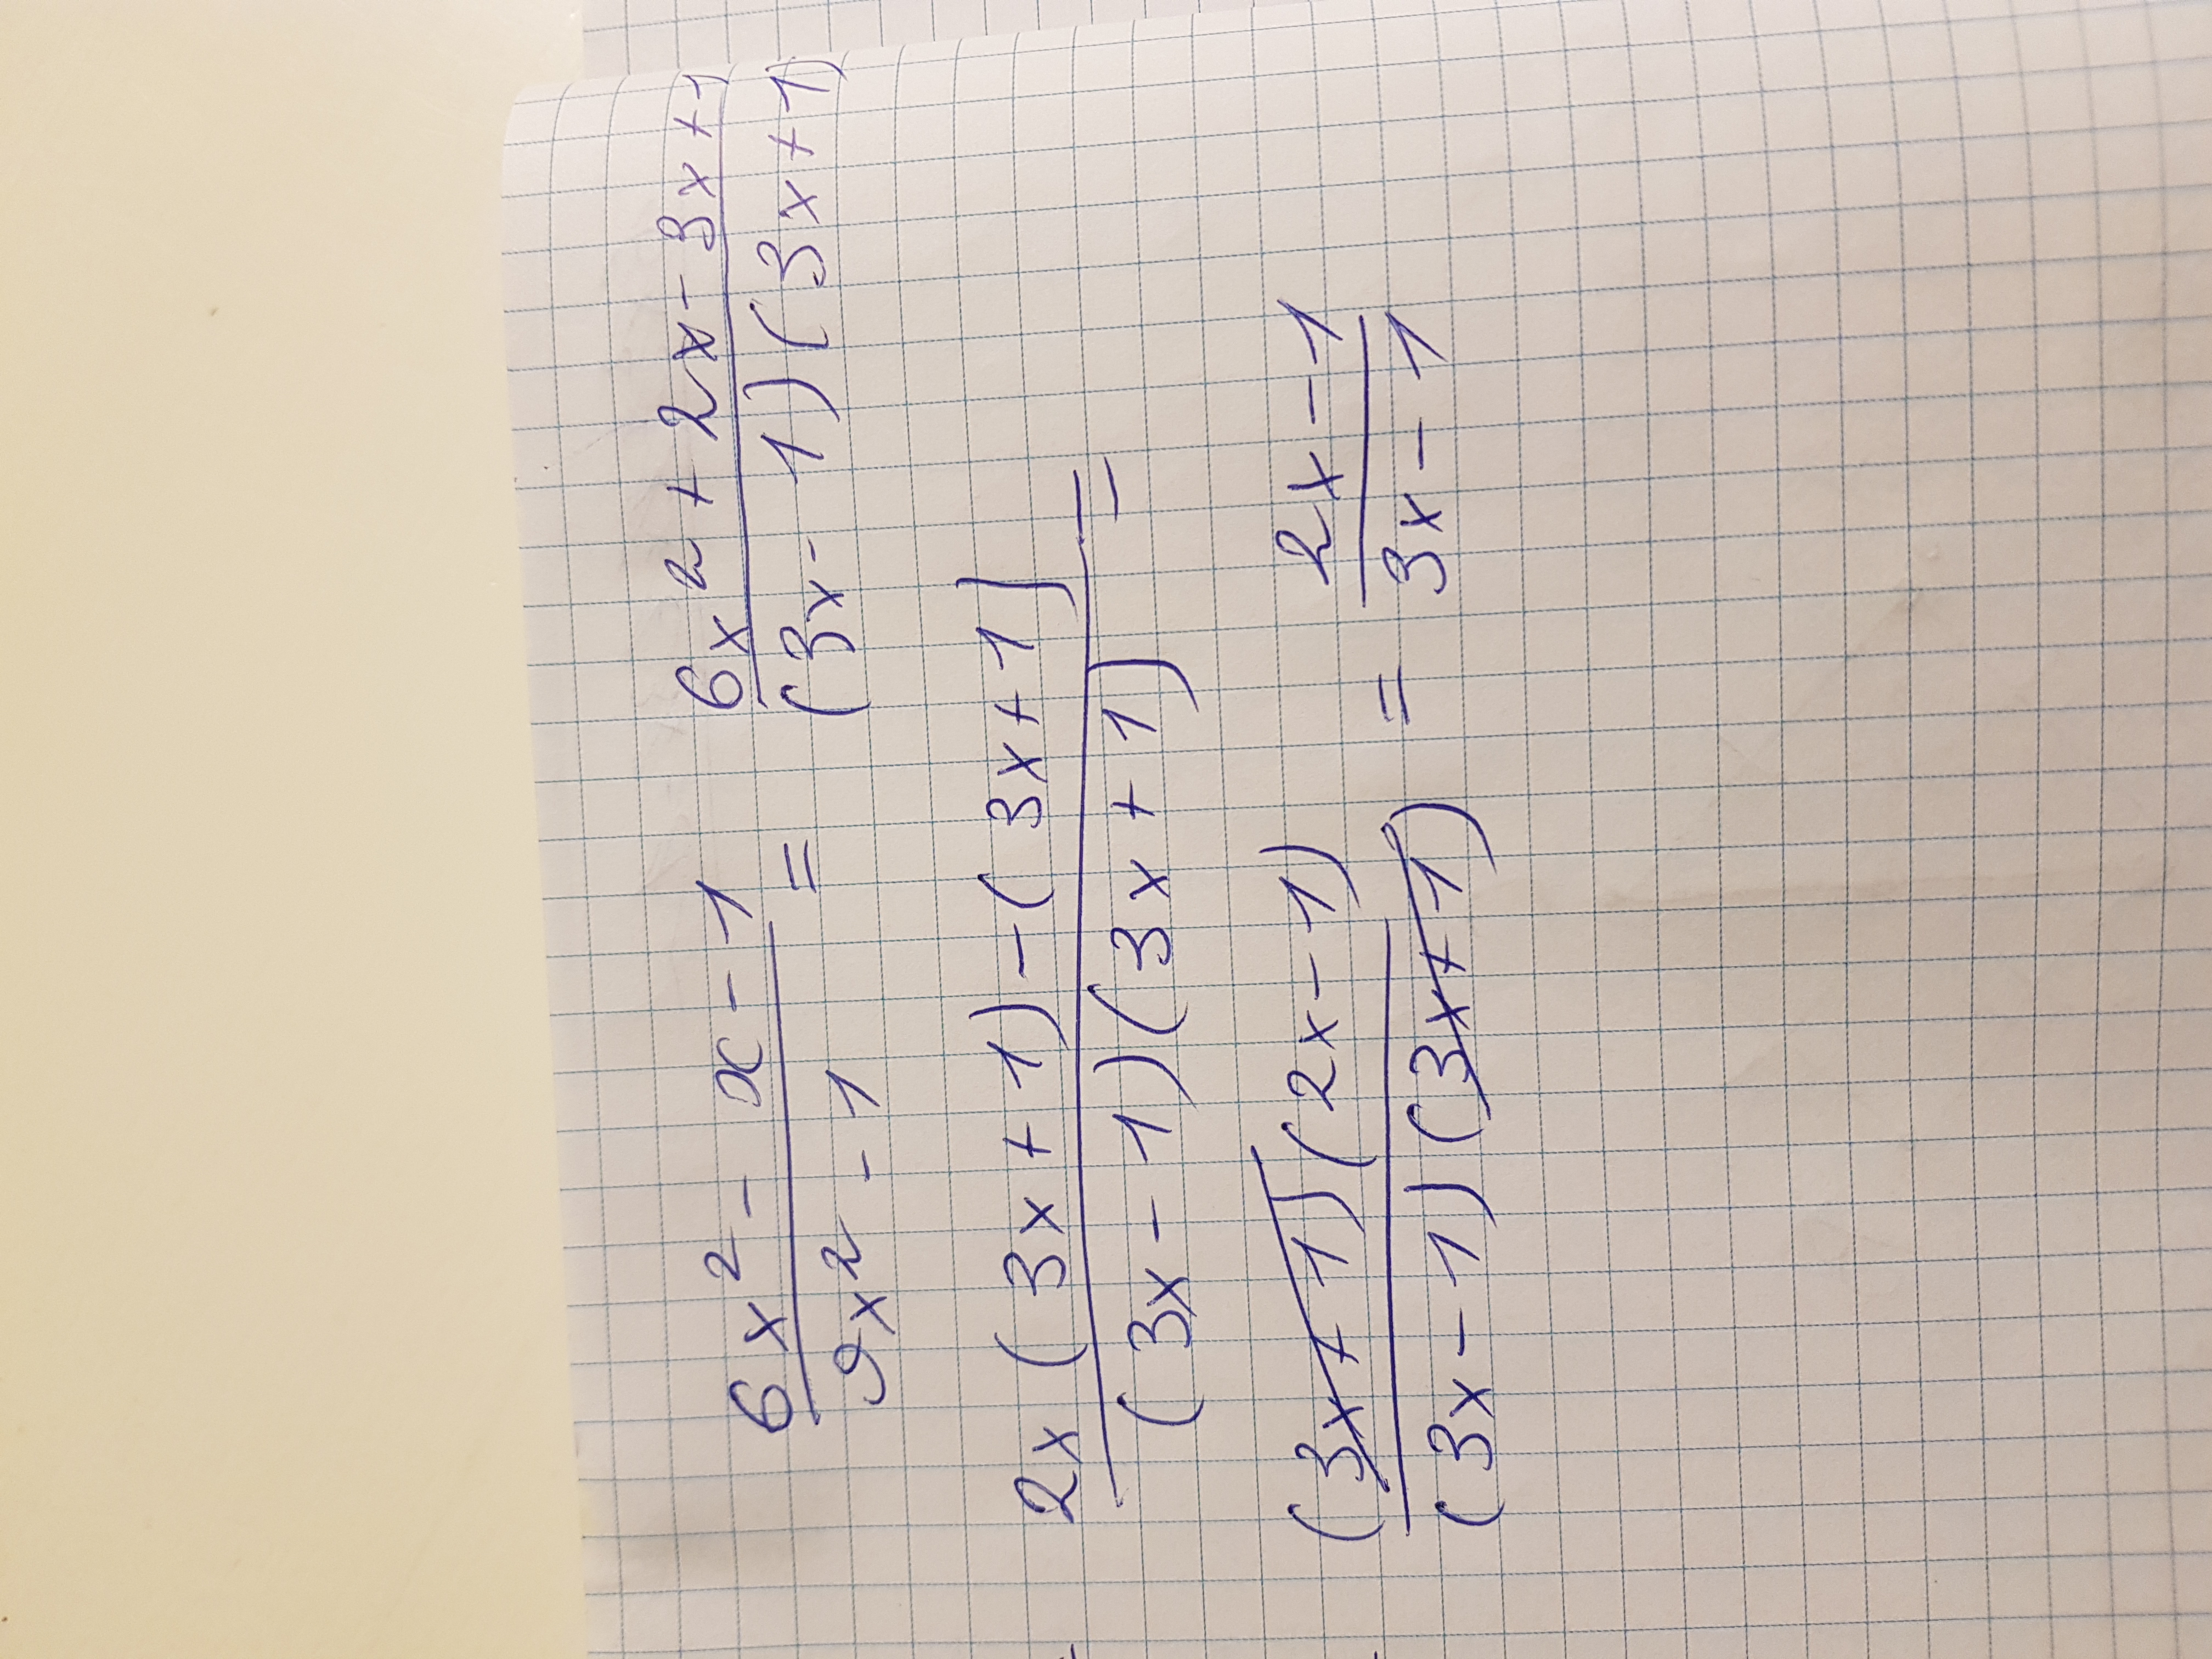 6x² - x - 1 / 9x² - 1 = 6x² + 2x - 3x + 1 / (3x - 1)(3x + 1)
2x(3x + 1) - (3x + 1) / (3x - 1)(3x + 1) =
(3x + 1)(2x - 1) / (3x - 1)(3x + 1) = 2x - 1 / 3x - 1